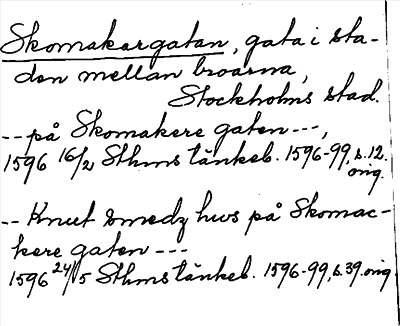 Skomakargatan, gata i sta-
den mellan broarna,
Stockholms stad.
-- på Skomakere gaten ---,
1596 16/2 Sthms tänkeb. 1596-99, s. 12.
orig.
-- Knut smedz hus på Skomac-
kere gaten ---
1596 24/5 Sthms tänkeb. 1596-99, s. 39. orig.